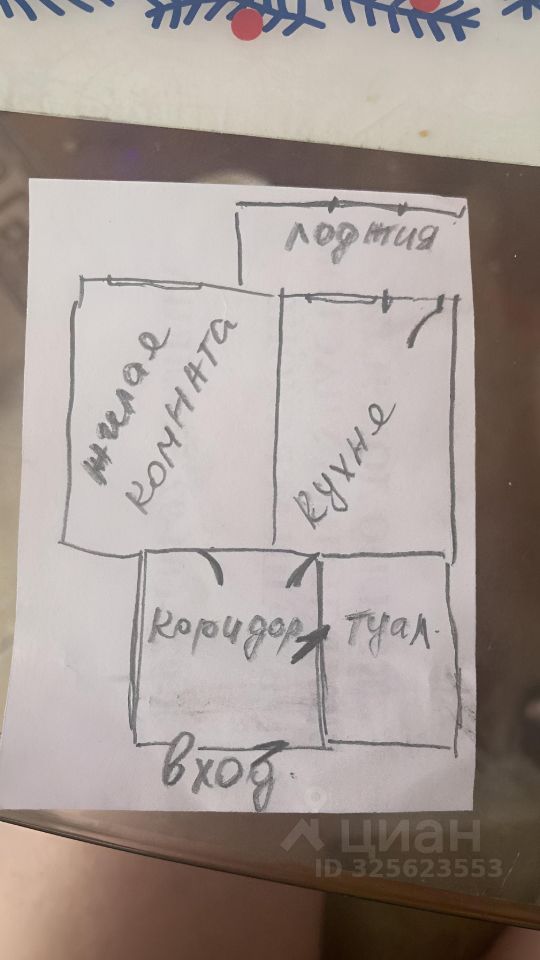 лоджия
жилая
комната
кухне
коридор
туал.
вход.
циан
ID 325623553